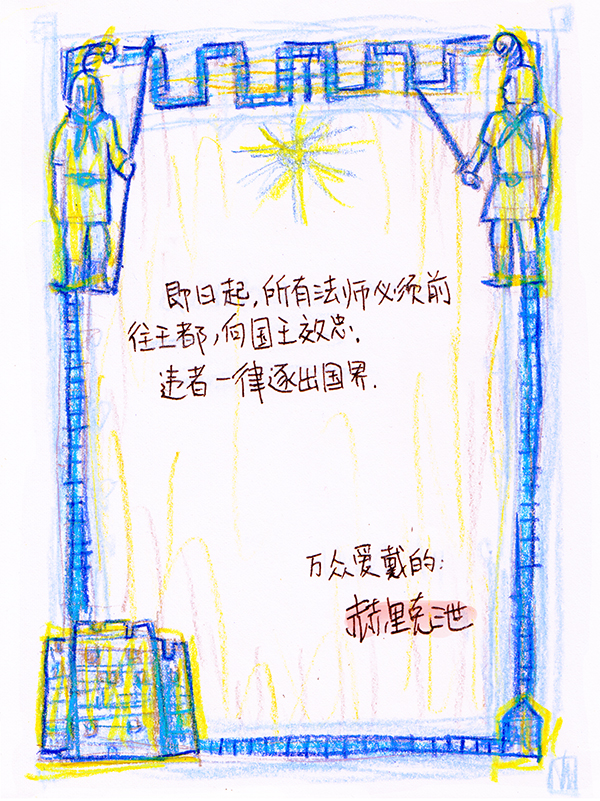 即日起,所有法师必须前
往王都,向国王效忠.
违者一律逐出国界.
万众爱戴的:
赫里克三世